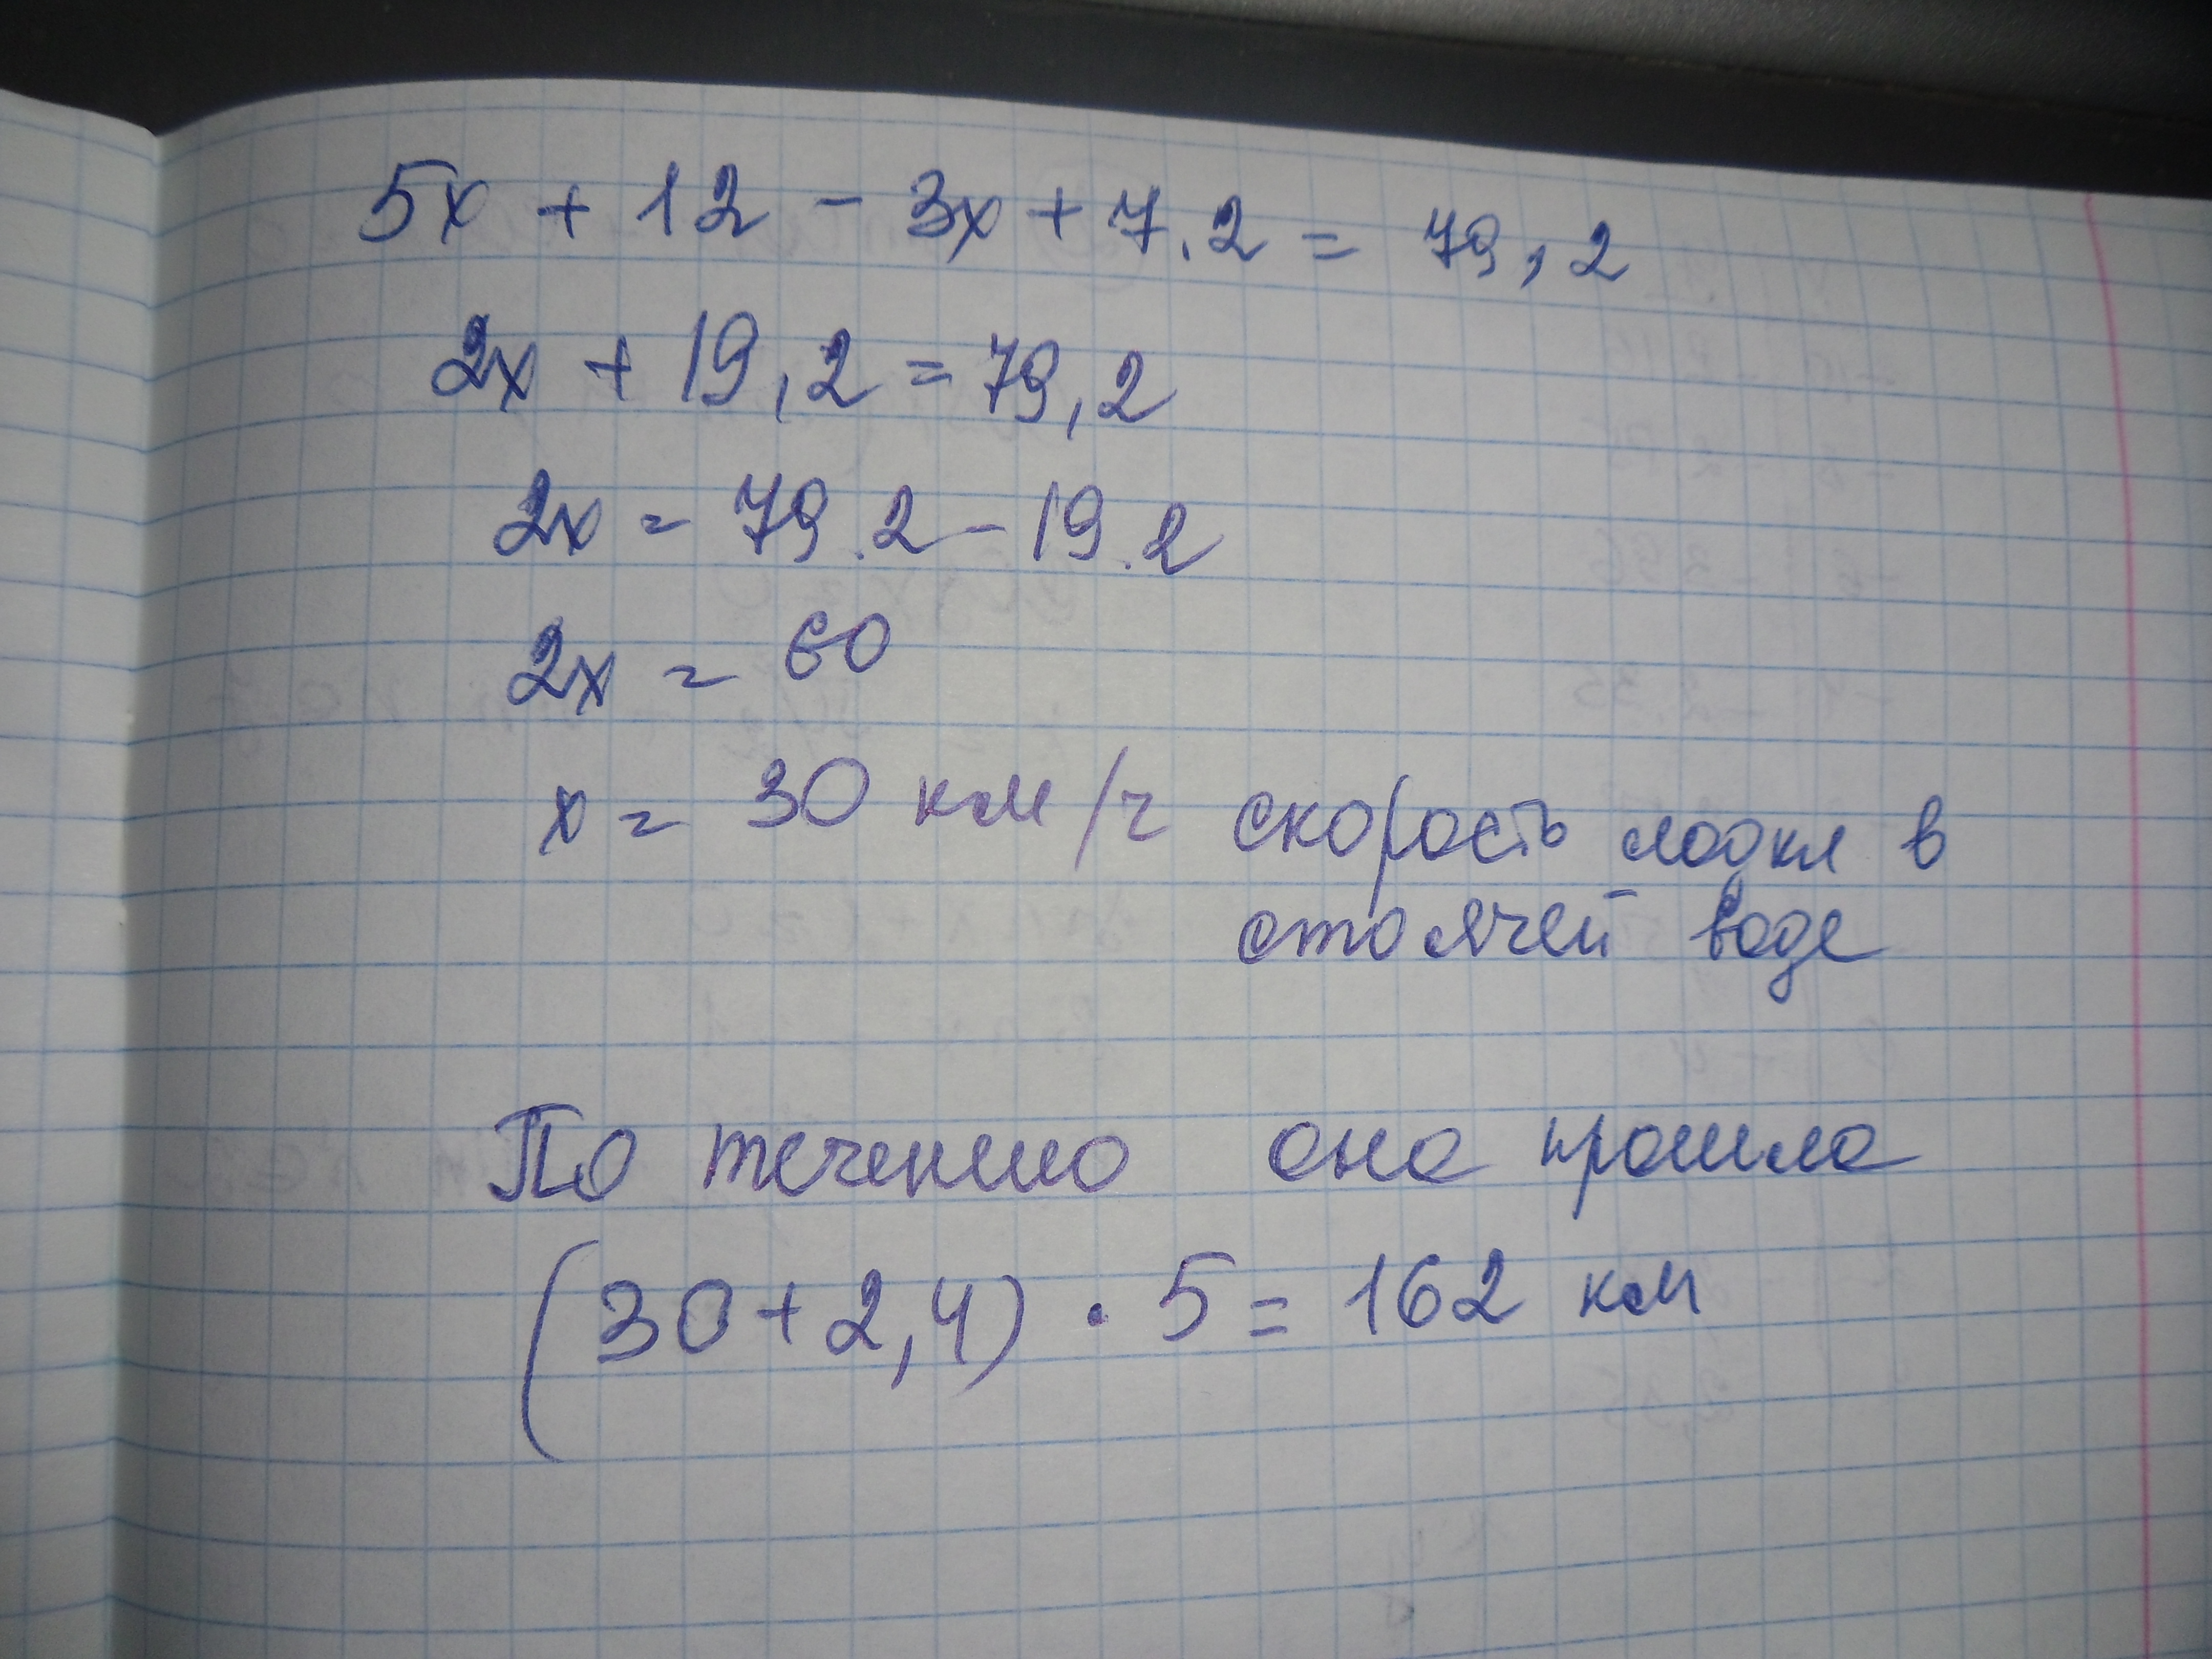 5x + 12 - 3x + 7.2 = 79,2
2x + 19,2 = 79,2
2x = 79.2 - 19.2
2x = 60
x = 30 км/ч скорость лодки в
стоячей воде
По течению она прошла
(30+2,4) · 5 = 162 км